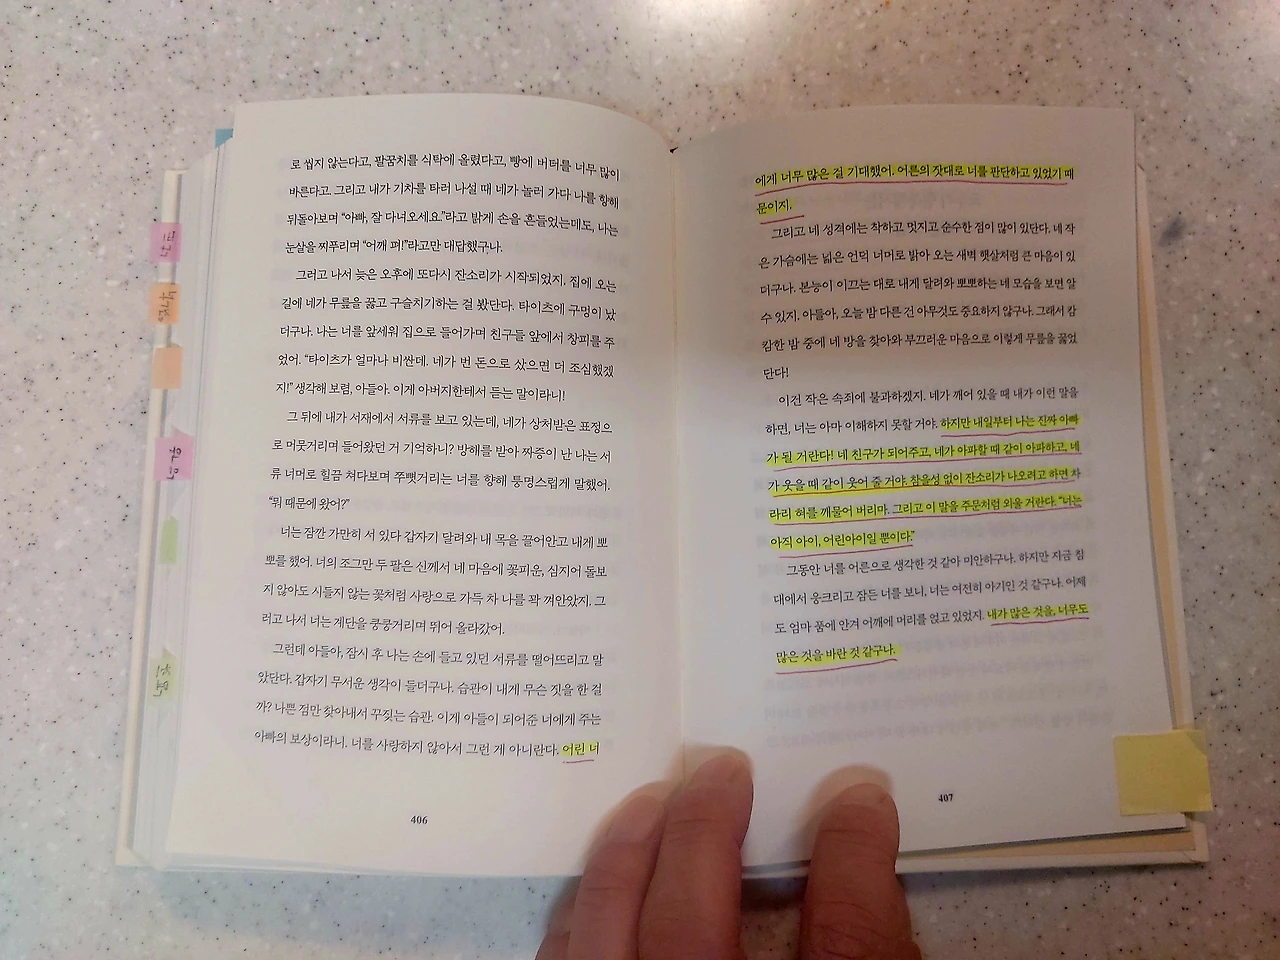 로 씹지 않는다고, 팔꿈치를 식탁에 올렸다고, 빵에 버터를 너무 많이
바른다고. 그리고 내가 기차를 타러 나설 때 네가 놀러 가다 나를 향해
뒤돌아보며 “아빠, 잘 다녀오세요.”라고 밝게 손을 흔들었는데도, 나는
눈살을 찌푸리며 “어깨 펴!”라고만 대답했구나.
그러고 나서 늦은 오후에 또다시 잔소리가 시작되었지. 집에 오는
길에 네가 무릎을 꿇고 구슬치기하는 걸 봤단다. 타이츠에 구멍이 났
더구나. 나는 너를 앞세워 집으로 들어가며 친구들 앞에서 창피를 주
었어. “타이츠가 얼마나 비싼데. 네가 번 돈으로 샀으면 더 조심했겠
지!” 생각해 보렴, 아들아. 이게 아버지한테서 듣는 말이라니!
그 뒤에 내가 서재에서 서류를 보고 있는데, 네가 상처받은 표정으
로 머뭇거리며 들어왔던 거 기억하니? 방해를 받아 짜증이 난 나는 서
류 너머로 힐끔 쳐다보며 쭈뼛거리는 너를 향해 퉁명스럽게 말했어.
“뭐 때문에 왔어?”
너는 잠깐 가만히 서 있다 갑자기 달려와 내 목을 끌어안고 내게 뽀
뽀를 했어. 너의 조그만 두 팔은 신께서 네 마음에 꽃피운, 심지어 돌보
지 않아도 시들지 않는 꽃처럼 사랑으로 가득 차 나를 꽉 껴안았지. 그
러고 나서 너는 계단을 쿵쿵거리며 뛰어 올라갔어.
그런데 아들아, 잠시 후 나는 손에 들고 있던 서류를 떨어뜨리고 말
았단다. 갑자기 무서운 생각이 들더구나. 습관이 내게 무슨 짓을 한 걸
까? 나쁜 점만 찾아내서 꾸짖는 습관. 이게 아들이 되어준 너에게 주는
아빠의 보상이라니. 너를 사랑하지 않아서 그런 게 아니란다. 어린 너
406
에게 너무 많은 걸 기대했어. 어른의 잣대로 너를 판단하고 있었기 때
문이지.
그리고 네 성격에는 착하고 멋지고 순수한 점이 많이 있단다. 네 작
은 가슴에는 넓은 언덕 너머로 밝아 오는 새벽 햇살처럼 큰 마음이 있
더구나. 본능이 이끄는 대로 내게 달려와 뽀뽀하는 네 모습을 보면 알
수 있지. 아들아, 오늘 밤 다른 건 아무것도 중요하지 않구나. 그래서 캄
캄한 밤 중에 네 방을 찾아와 부끄러운 마음으로 이렇게 무릎을 꿇었
단다!
이건 작은 속죄에 불과하겠지. 네가 깨어 있을 때 내가 이런 말을
하면, 너는 아마 이해하지 못할 거야. 하지만 내일부터 나는 진짜 아빠
가 될 거란다! 네 친구가 되어주고, 네가 아파할 때 같이 아파하고, 네
가 웃을 때 같이 웃어 줄 거야. 참을성 없이 잔소리가 나오려고 하면 차
라리 혀를 깨물어 버리마. 그리고 이 말을 주문처럼 외울 거란다. “너는
아직 아이, 어린아이일 뿐이다.”
그동안 너를 어른으로 생각한 것 같아 미안하구나. 하지만 지금 침
대에서 웅크리고 잠든 너를 보니, 너는 여전히 아기인 것 같구나. 어제
도 엄마 품에 안겨 어깨에 머리를 얹고 있었지. 내가 많은 것을, 너무도
많은 것을 바란 것 같구나.
407